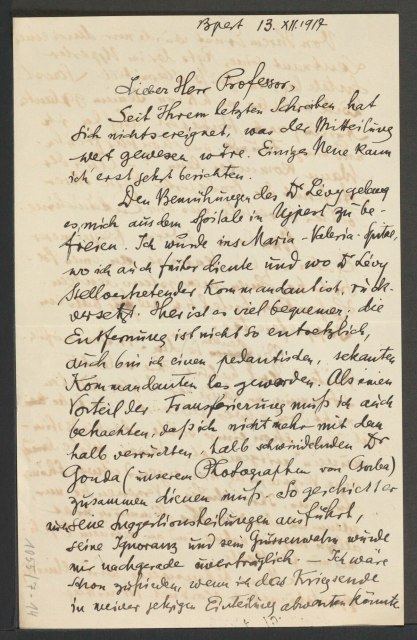 Bpest 13. XII. 1917
Lieber Herr Professor,
Seit Ihrem letzten Schreiben hat
sich nichts ereignet, was der Mitteilung
wert gewesen wäre. Einiges Neue kann
ich erst jetzt berichten.
Den Bemühungen des Dr Lévy gelang
es, mich aus dem Spitale in Ujpest zu be-
freien. Ich wurde ins Maria-Valeria-Spital,
wo ich auch früher diente und wo Dr Lévy
stellvertretender Kommandant ist, rück-
versetzt. Hier ist es viel bequemer; die
Entfernung ist nicht so entsetzlich,
auch bin ich einen pedantischen, sekanten
Kommandanten los geworden. Als einen
Vorteil der Transferierung muß ich auch
betrachten, daß ich nicht mehr mit dem
halb verrückten, halb schwindelnden Dr
Gonda (unserem Photographen von Csorba)
zusammen dienen muß. So geschickt er
seine Suggestionsheilungen ausführt,
seine Ignoranz und sein Grössenwahn würde
mir nachgerade unerträglich. — Ich wäre
schon zufrieden, wenn ich das Kriegsende
in meiner jetzigen Einteilung abwarten könnte
1055/7-14